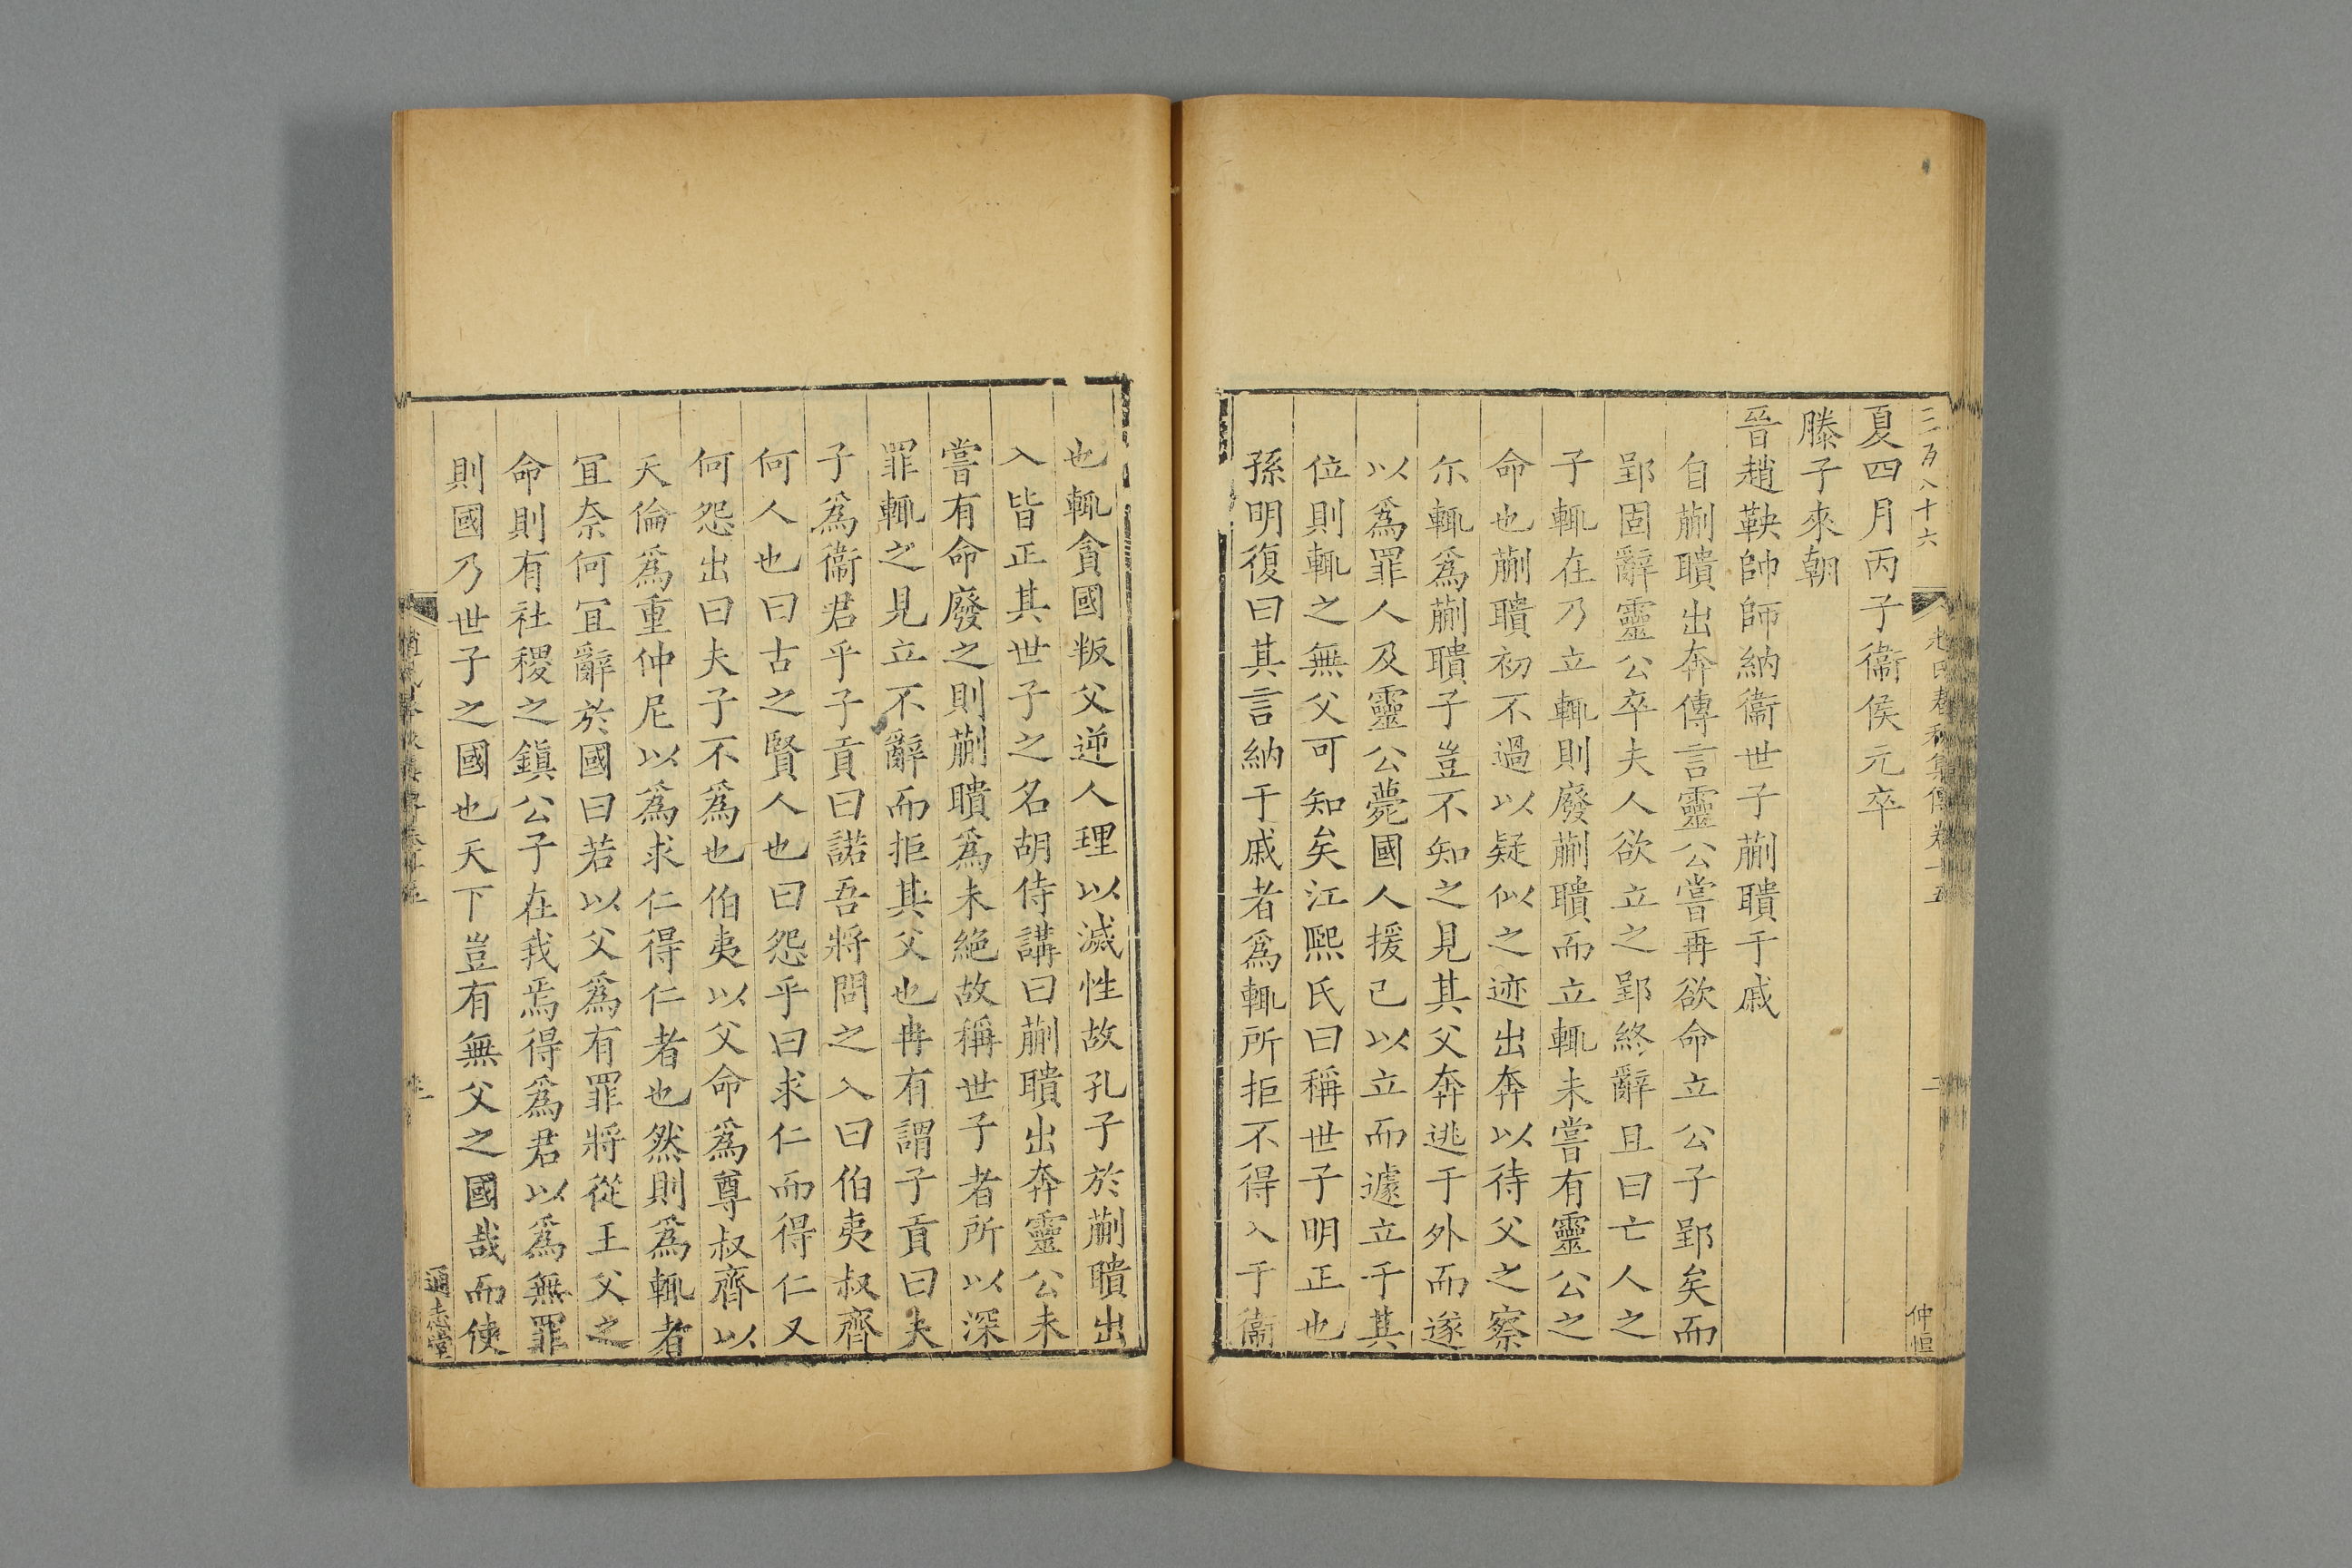 三百八十六
春秋集傳卷十五
二
仲恒
夏四月丙子衞侯元卒
滕子來朝
晉趙鞅帥師納衞世子蒯聵于戚
自蒯聵出奔傳言靈公嘗再欲命立公子郢矣而
郢固辭靈公卒夫人欲立之郢終辭且曰亡人之
子輒在乃立輒則廢蒯聵而立輒未嘗有靈公之
命也蒯聵初不過以疑似之迹出奔以待父之察
尓輒爲蒯聵子豈不知之見其父奔逃于外而遂
以爲罪人及靈公薨國人援已以立而遽立于其
位則輒之無父可知矣江熙氏曰稱世子明正也
孫明復曰其言納于戚者爲輒所拒不得入于衞
也輒貪國叛父逆人理以滅性故孔子於蒯聵出
入皆正其世子之名胡侍講曰蒯聵出奔靈公未
嘗有命廢之則蒯聵爲未絕故稱世子者所以深
罪輒之見立不辭而拒其父也冉有謂子貢曰夫
子爲衞君乎子貢曰諾吾將問之入曰伯夷叔齊
何人也曰古之賢人也曰怨乎曰求仁而得仁又
何怨出曰夫子不爲也伯夷以父命爲尊叔齊以
天倫爲重仲尼以爲求仁得仁者也然則爲輒者
宜奈何宜辭於國曰若以父爲有罪將從王父之
命則有社稷之鎮公子在我焉得爲君以爲無罪
則國乃世子之國也天下豈有無父之國哉而使
通志堂